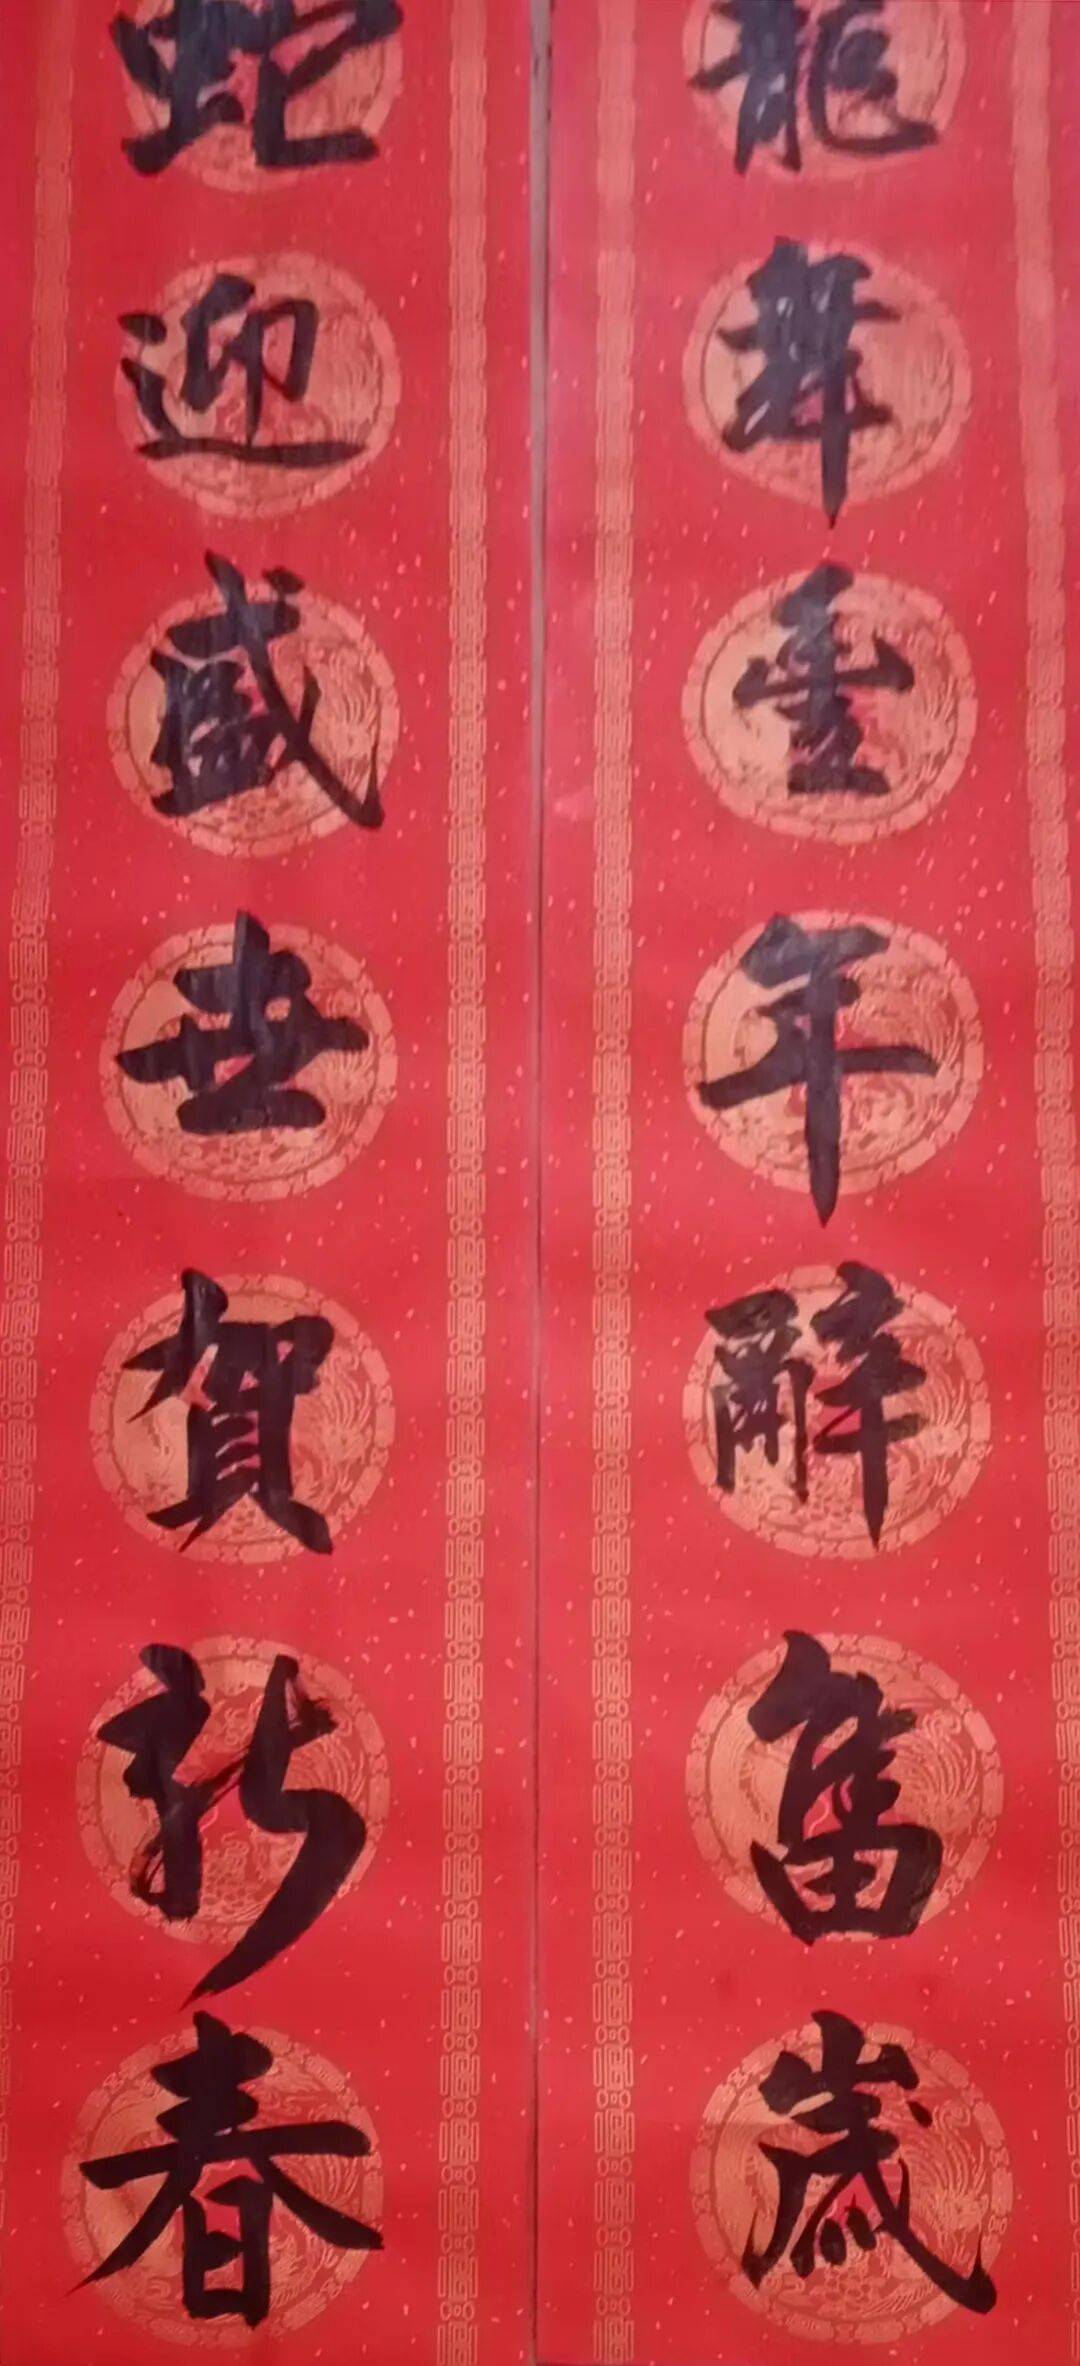 龍舞豐年辭舊歲
蛇迎盛世賀新春